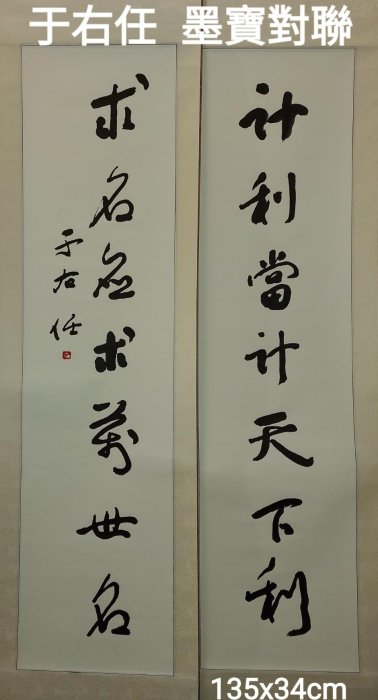 于右任 墨寶對聯
計利當計天下利
求名應求萬世名
于右任
135x34cm